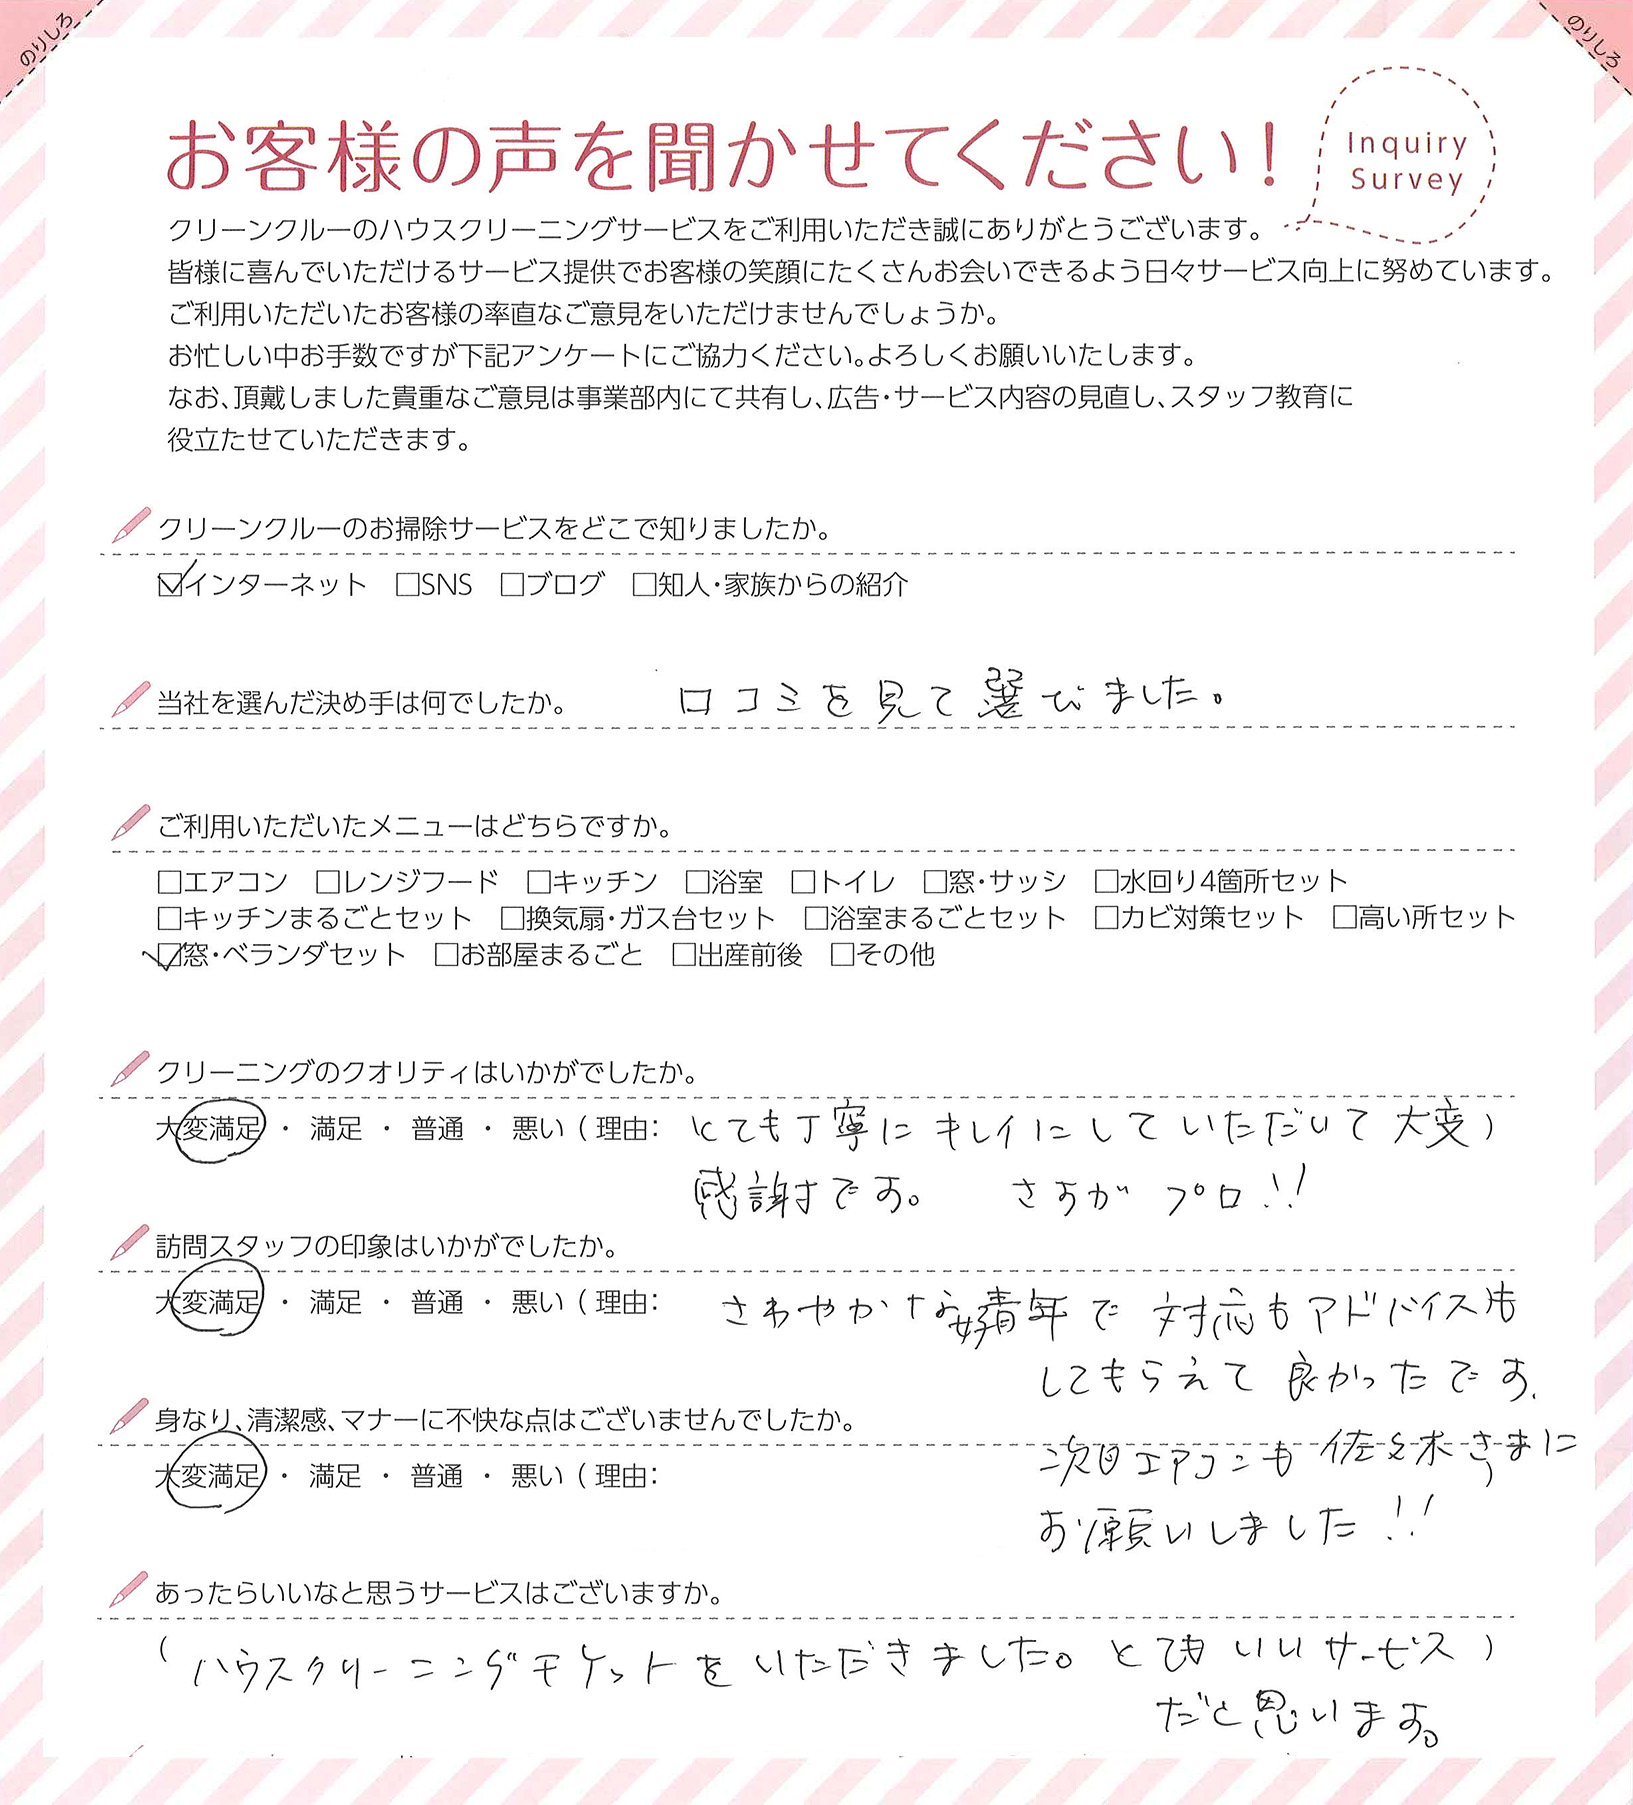 のりしろ
のりしろ
お客様の声を聞かせてください！
Inquiry
Survey
クリーンクルーのハウスクリーニングサービスをご利用いただき誠にありがとうございます。
皆様に喜んでいただけるサービス提供でお客様の笑顔にたくさんお会いできるよう日々サービス向上に努めています。
ご利用いただいたお客様の率直なご意見をいただけませんでしょうか。
お忙しい中お手数ですが下記アンケートにご協力ください。よろしくお願いいたします。
なお、頂戴しました貴重なご意見は事業部内にて共有し、広告・サービス内容の見直し、スタッフ教育に
役立たせていただきます。
クリーンクルーのお掃除サービスをどこで知りましたか。
☑インターネット □SNS □ブログ □知人・家族からの紹介
当社を選んだ決め手は何でしたか。 口コミを見て選びました。
ご利用いただいたメニューはどちらですか。
□エアコン □レンジフード □キッチン □浴室 □トイレ □窓・サッシ □水回り4箇所セット
□キッチンまるごとセット □換気扇・ガス台セット □浴室まるごとセット □カビ対策セット □高い所セット
☑窓・ベランダセット □お部屋まるごと □出産前後 □その他
クリーニングのクオリティはいかがでしたか。
大変満足 ・ 満足 ・ 普通 ・ 悪い ( 理由: とても丁寧にキレイにしていただいて大変 )
感謝です。 さすがプロ!!
訪問スタッフの印象はいかがでしたか。
大変満足 ・ 満足 ・ 普通 ・ 悪い ( 理由: さわやかな好青年で対応もアドバイスも
してもらえて良かったです。
身なり、清潔感、マナーに不快な点はございませんでしたか。
次回エアコンも佐々木さまに
大変満足 ・ 満足 ・ 普通 ・ 悪い ( 理由: )
お願いしました!!
あったらいいなと思うサービスはございますか。
( ハウスクリーニングチケットをいただきました。とてもいいサービス )
だと思います。